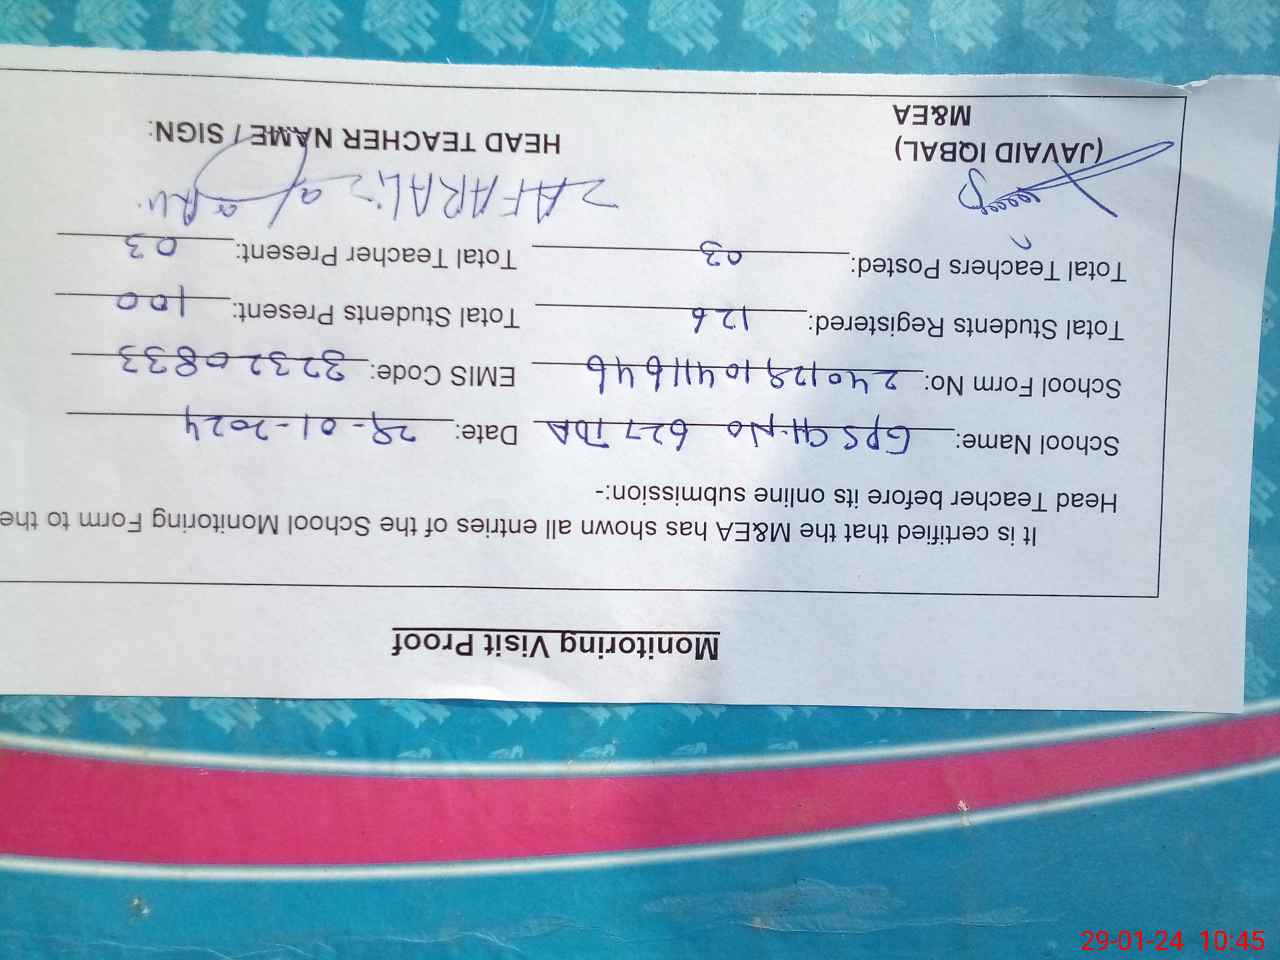 Monitoring Visit Proof
It is certified that the M&EA has shown all entries of the School Monitoring Form to the
Head Teacher before its online submission:-
School Name: GPS CH.NO 627 TDA Date: 29-01-2024
School Form No: 24012910411646 EMIS Code: 32320833
Total Students Registered: 126 Total Students Present: 100
Total Teachers Posted: 03 Total Teacher Present: 03
ZAFAR ALI
(JAVAID IQBAL) HEAD TEACHER NAME / SIGN:
M&EA
29-01-24 10:45